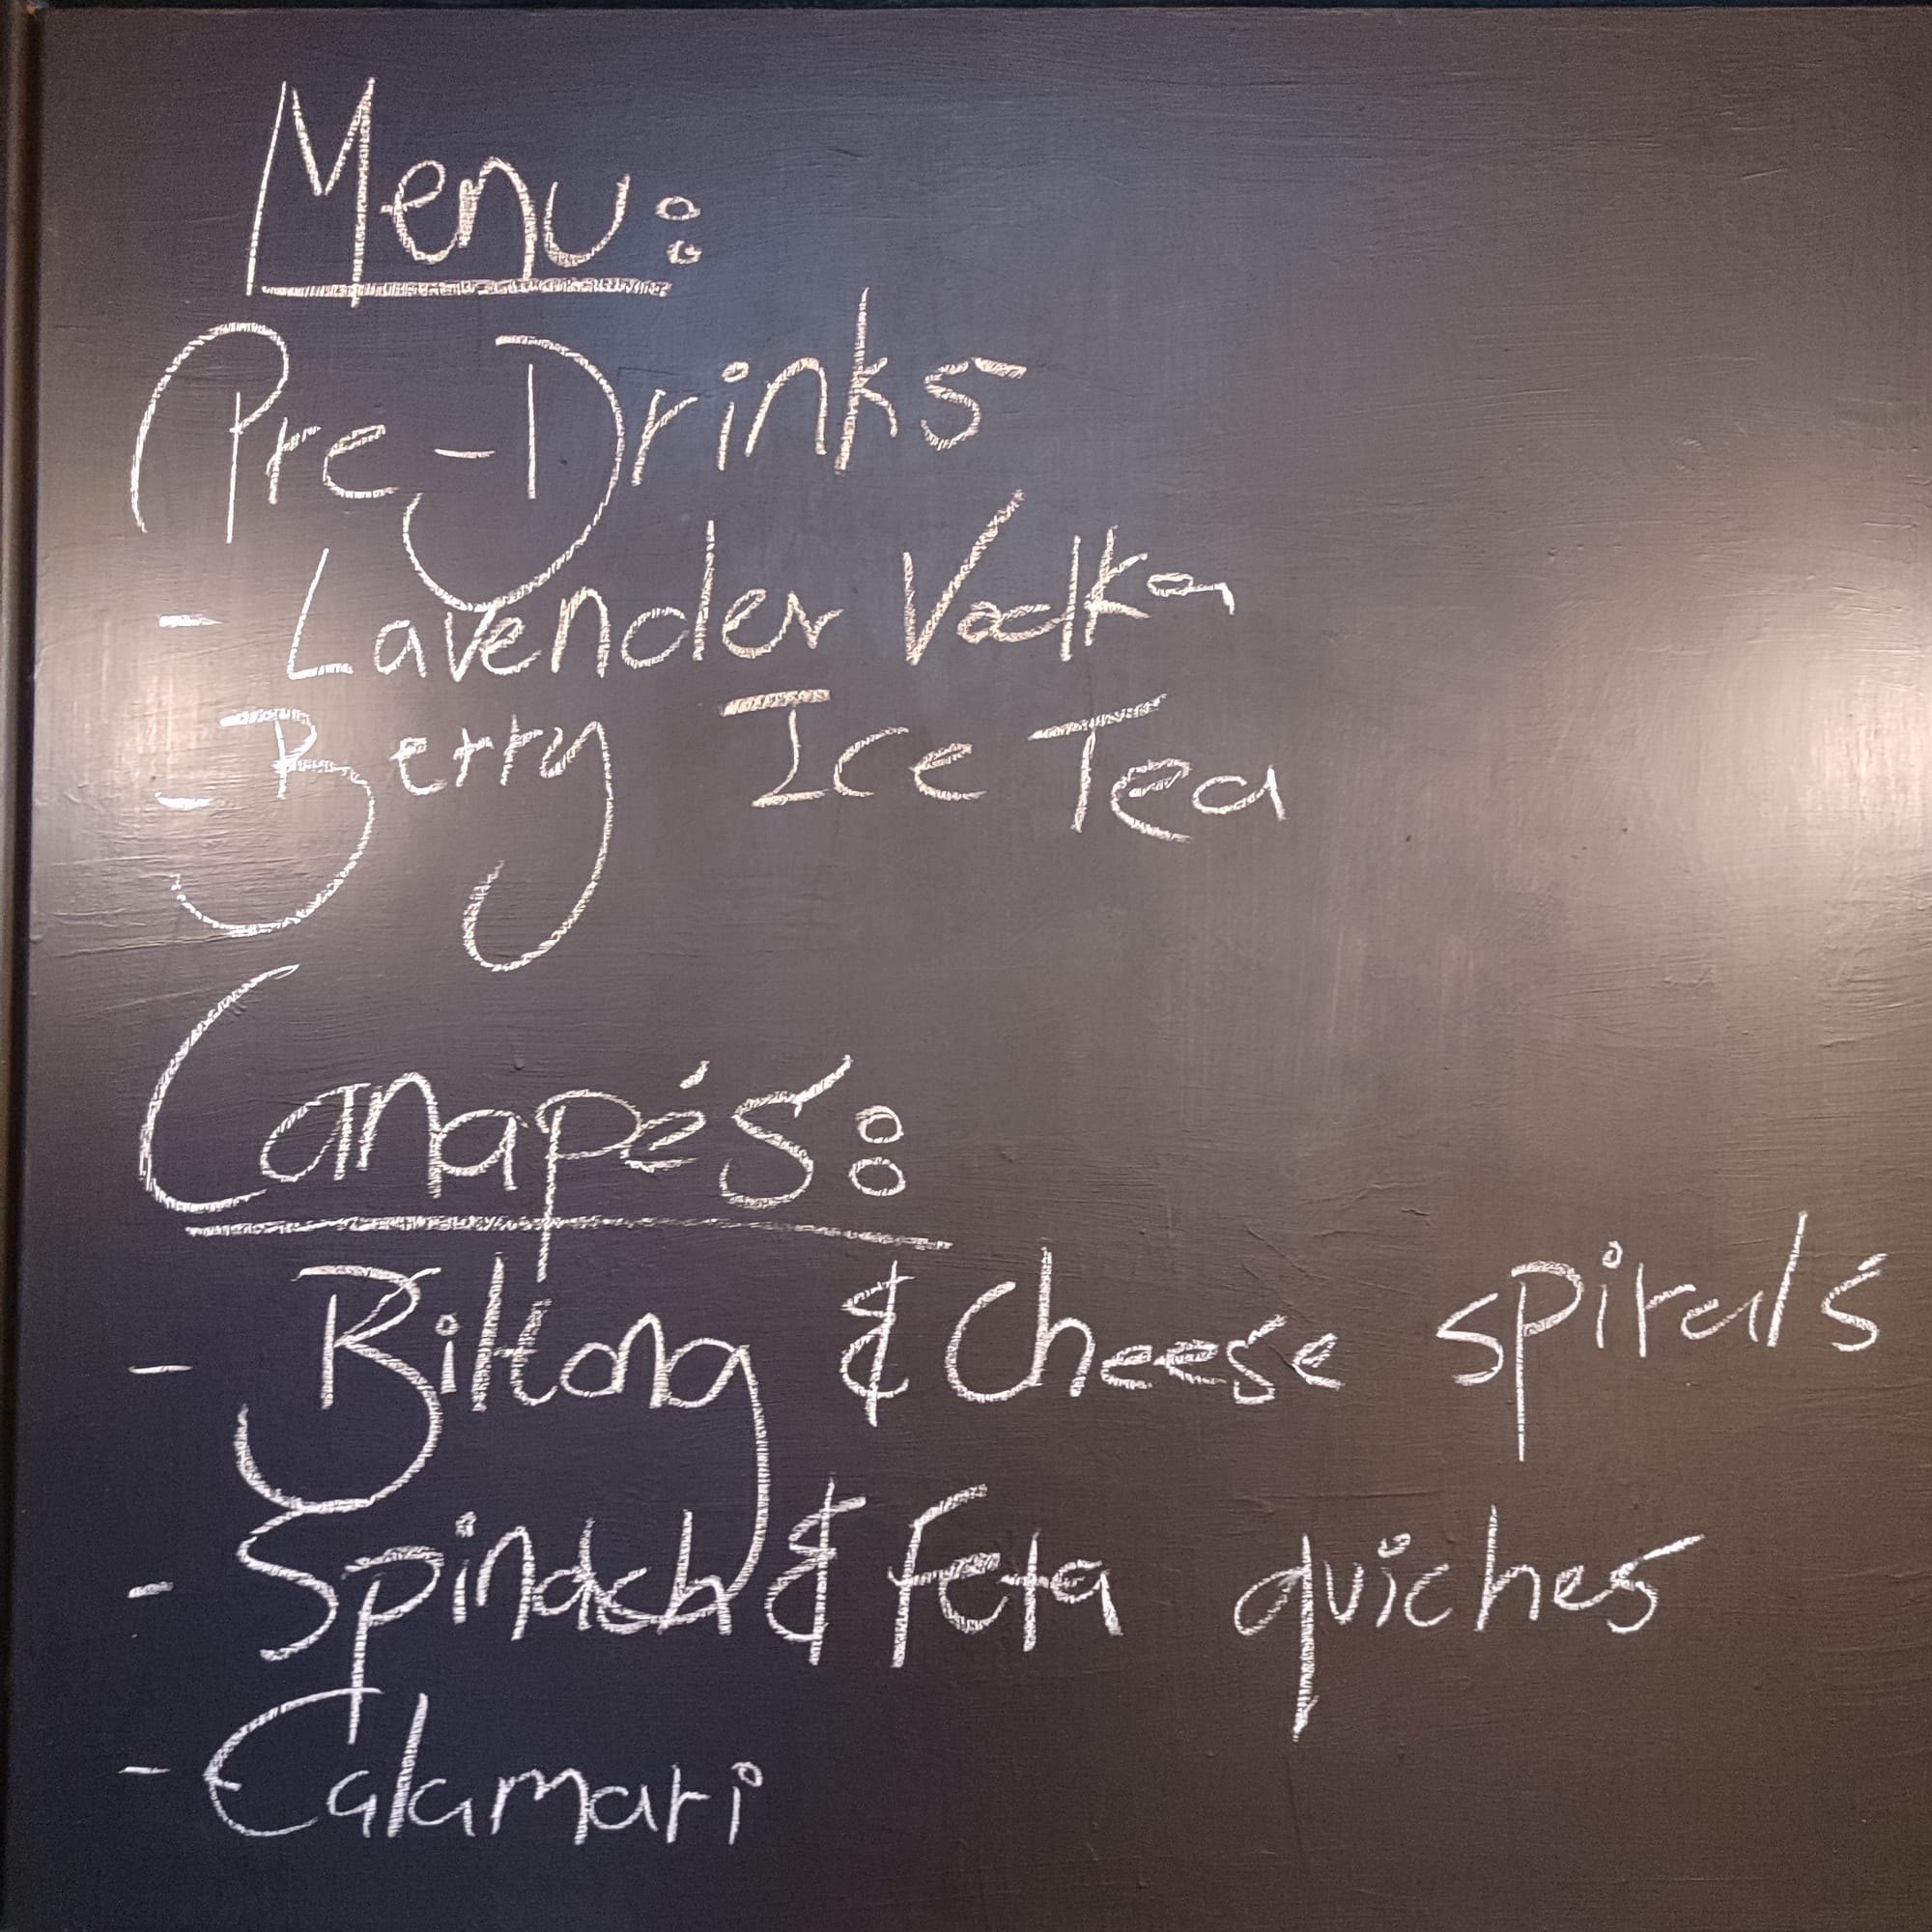 Menu:
Pre-Drinks
- Lavender Vodka
- Berry Ice Tea
Canapés:
- Biltong & Cheese spirals
- Spinach & Feta quiches
- Calamari